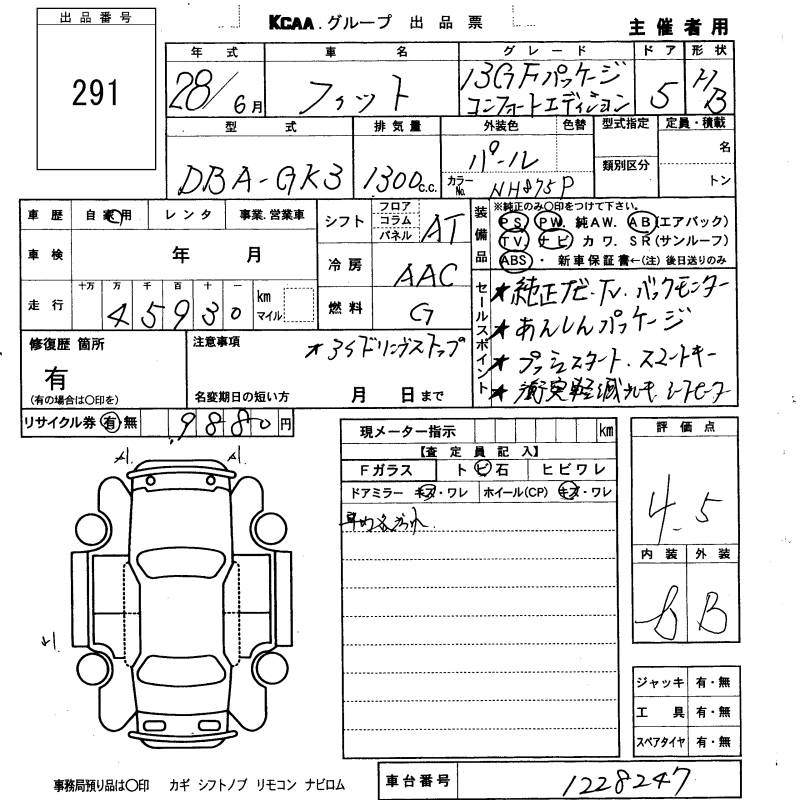 出品番号
291
KCAA.グループ 出品票
主催者用
年式 車名 グレード ドア 形状
28/6月 フィット 13GFパッケージ コンフォートエディション 5 HB
型式 排気量 外装色 色替 型式指定 定員・積載
DBA-GK3 1300c.c. パール
カラーNo. NH875P
類別区分
名
トン
車歴 自家用 レンタ 事業.営業車
車検 年 月
走行 十万 万 千 百 十 一
45930 km マイル
シフト フロア コラム パネル AT
冷房 AAC
燃料 G
装備品
※純正のみ〇印をつけて下さい。
PS PW. 純AW. AB(エアバック)
TV. ナビ カワ. SR(サンルーフ)
ABS・新車保証書←(注)後日送りのみ
セールスポイント
★純正ナビ・TV. バックモニター
★あんしんパッケージ
★プッシュスタート. スマートキー
修復歴箇所
有
(有の場合は〇印を)
注意事項
★アイドリングストップ
名変期日の短い方 月 日まで
リサイクル券 有・無 9880円
現メーター指示 km
【査定員記入】
Fガラス トビ石 ヒビワレ
ドアミラー キズ・ワレ ホイール(CP) キズ・ワレ
評価点
4.5
内装 外装
B
A1 A1
ジャッキ 有・無
工具 有・無
スペアタイヤ 有・無
事務局預り品は〇印 カギ シフトノブ リモコン ナビロム
車台番号 1228247